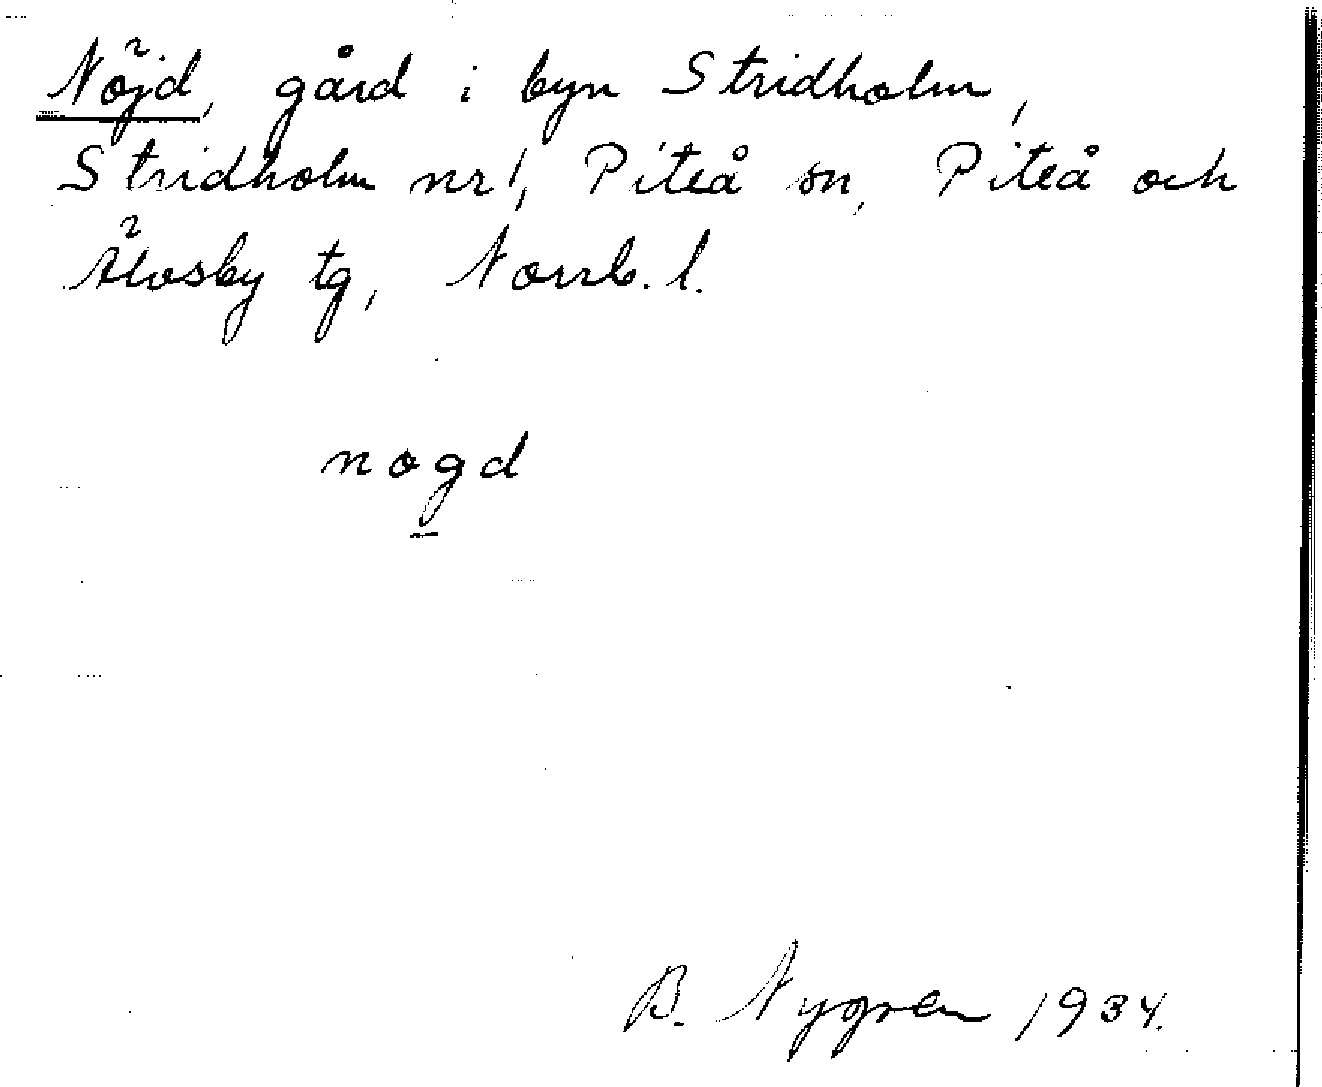 Nöjd, gård i byn Stridholm,
Stridholm nr 1, Piteå sn, Piteå och
Älvsby tg, Norrb. l.
nogd
B. Nygren 1934.